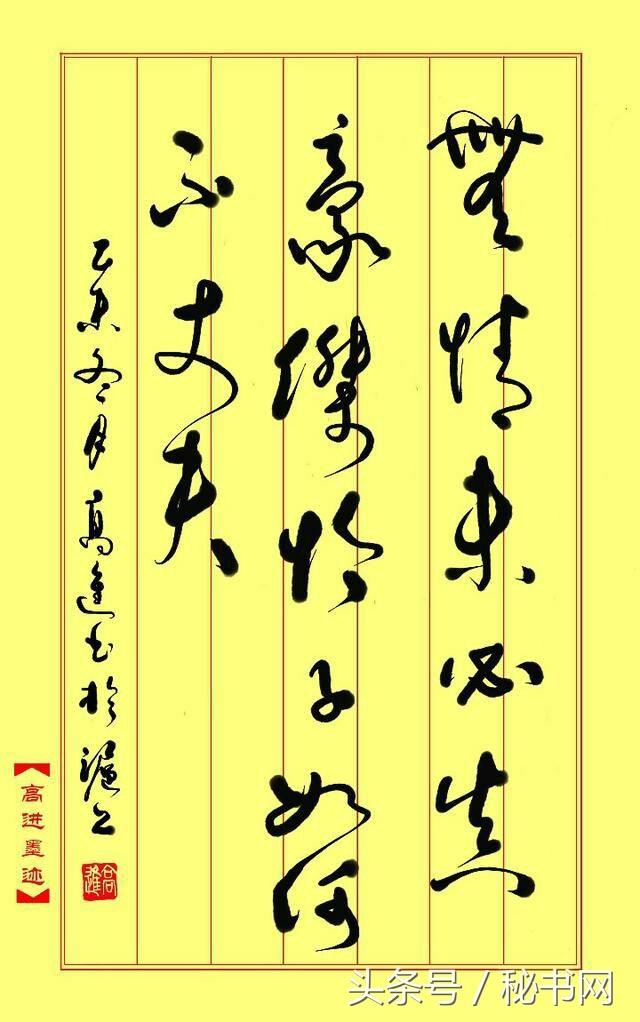 無情未必真
豪傑怜子如何
不丈夫
乙未冬月高進书於滬上
高進
【高进墨迹】
头条号／秘书网